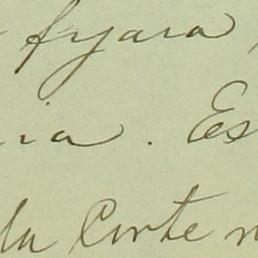 fijara,
ia. Es
la Corte n